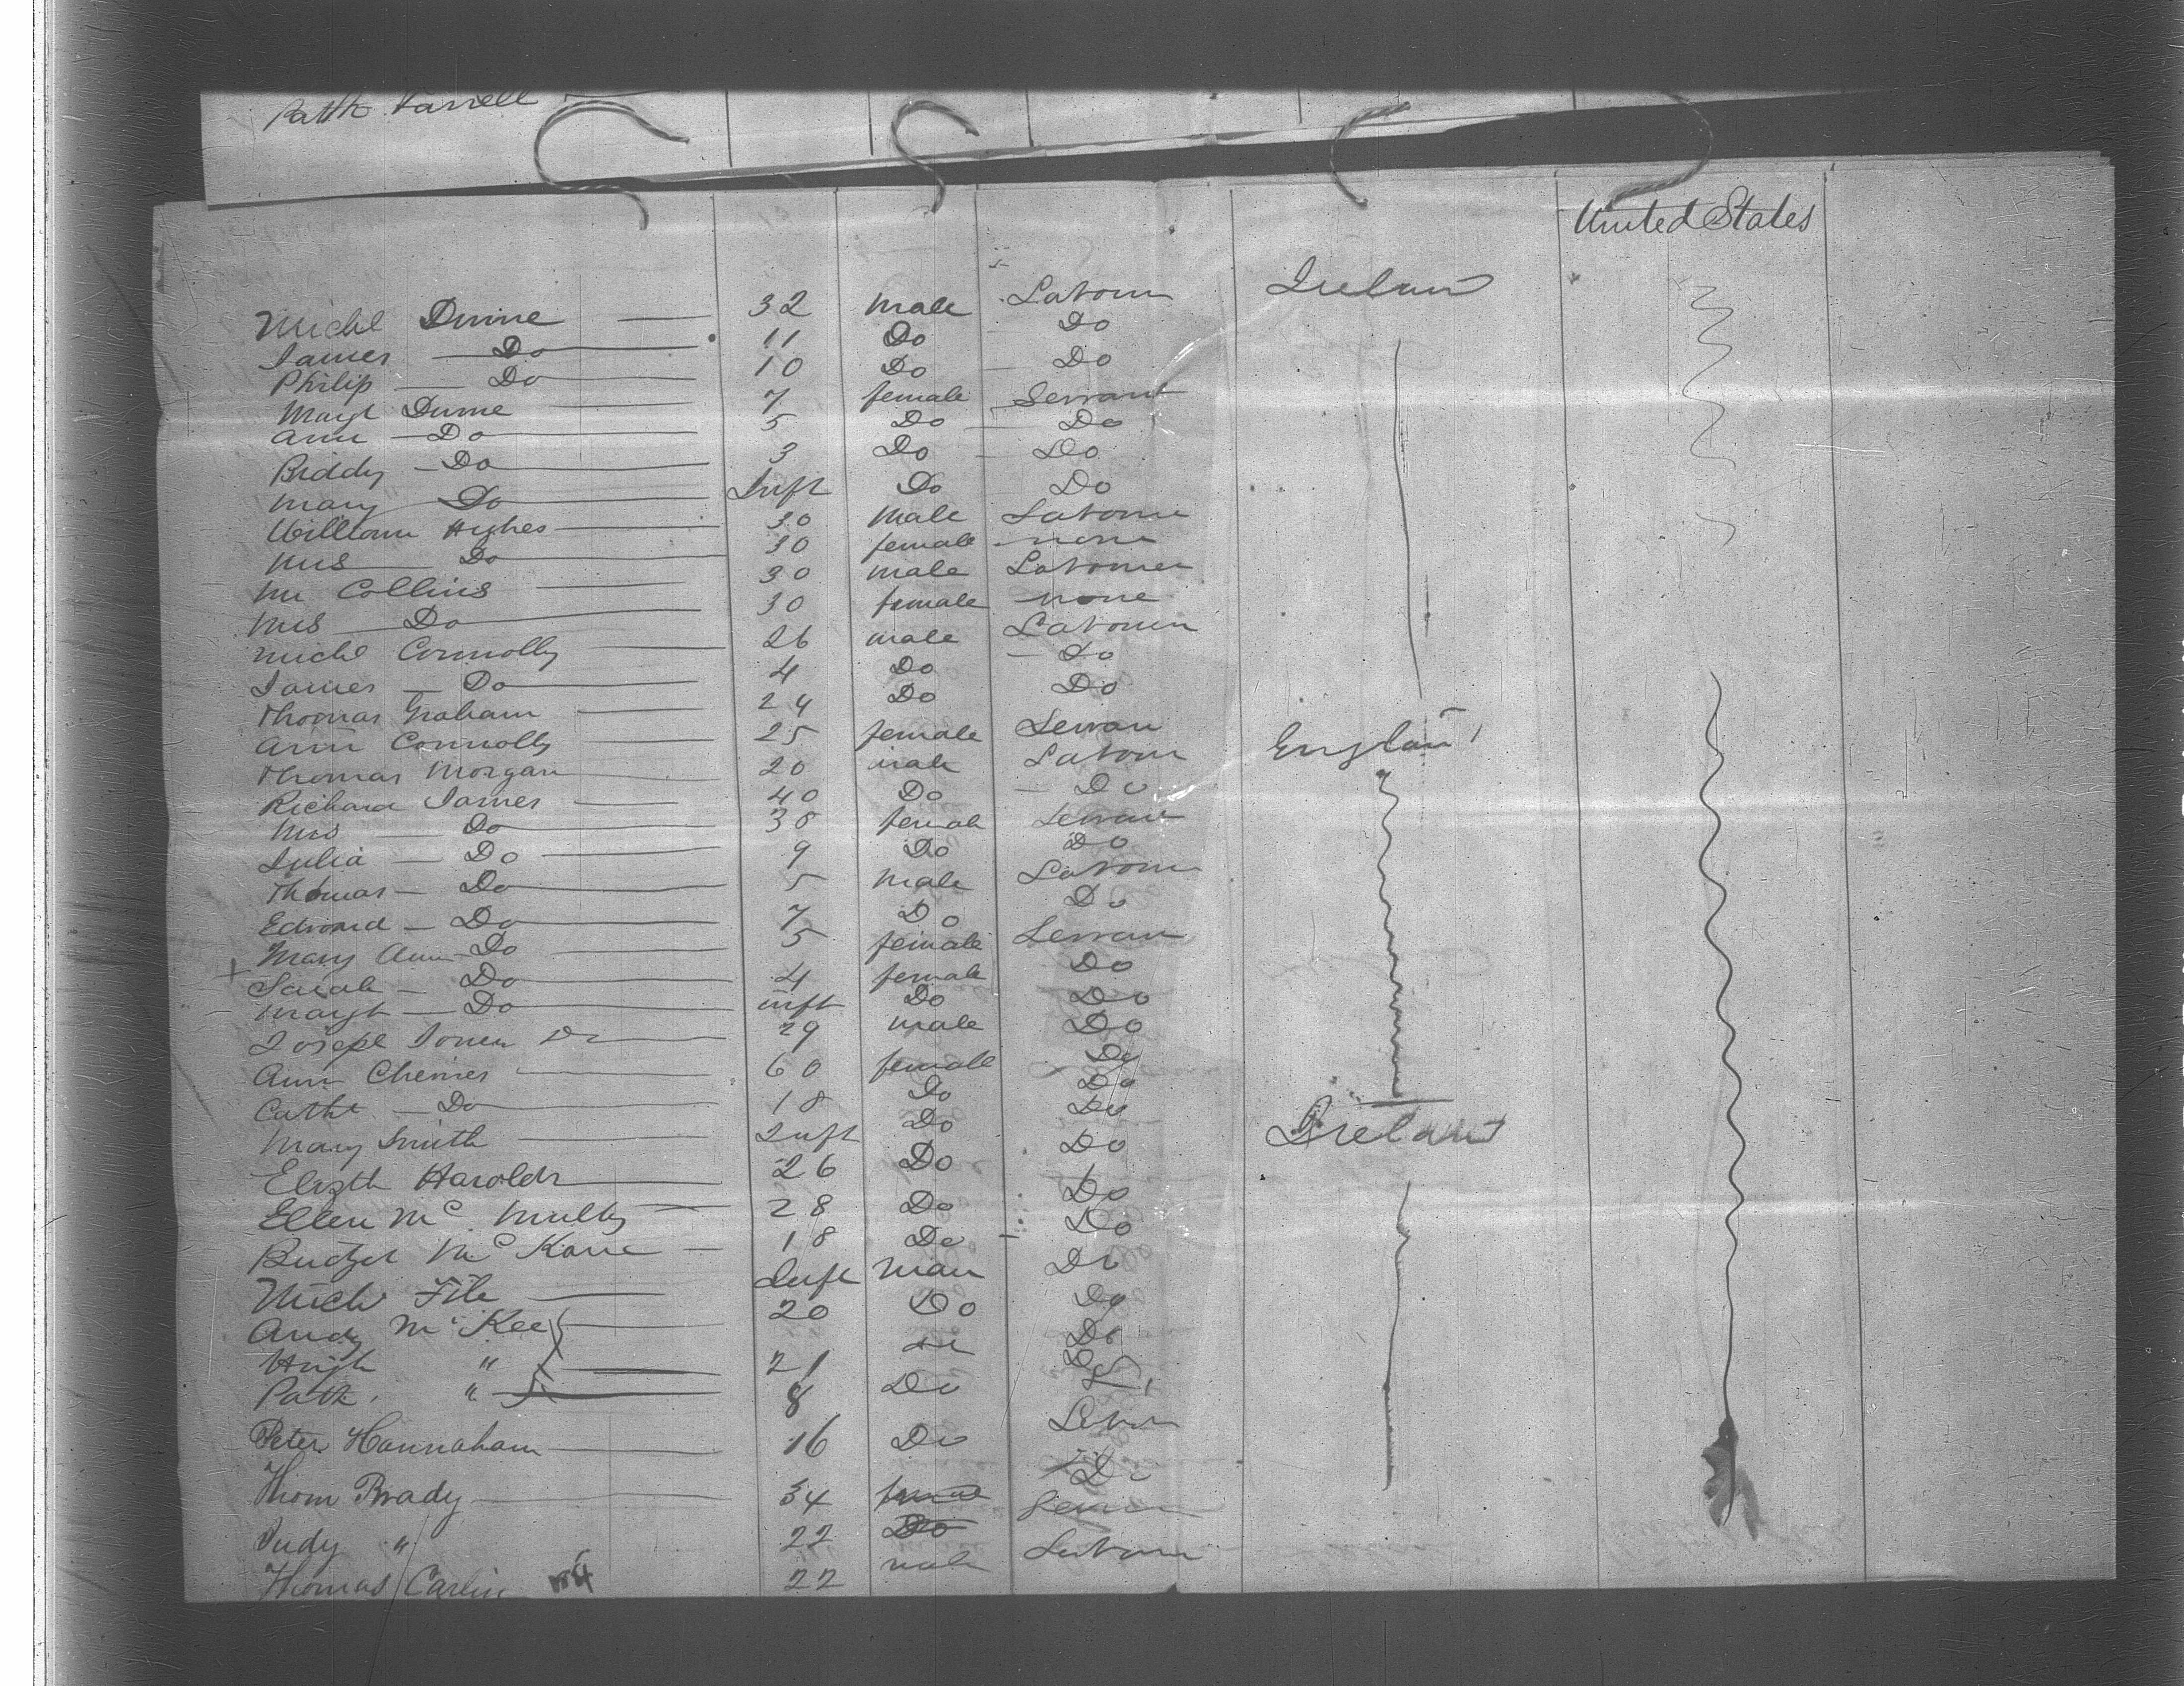 Patk Farrell
United States
Michl Dunne 32 male Labour Ireland
James Do 11 Do Do
Philip Do 10 Do Do
Margt Dunne 7 female Servant
Ann Do 5 Do Do
Biddy Do 3 Do Do
Mary Do Inft Do Do
William Hughes 30 Male Labour
Mrs Do 30 female none
Mr Collins 30 male Labourer
Mrs Do 30 female none
Michl Connolly 26 male Labour
James Do 4 Do Do
Thomas Graham 24 Do Do
Ann Connolly 25 female Servan England
Thomas Morgan 20 male Labour
Richard James 40 Do Do
Mrs Do 38 female Servan
Julia Do 9 Do Do
Thomas Do 5 Male Labour
Edward Do 7 Do Do
Mary Ann Do 5 female Servan
Sarah Do 4 female Do
Margt Do inft Do Do
Joseph 29 male Do
Ann 60 female Do
Cathe Do 18 Do Do
Mary Smith Inft Do Do Ireland
Elizth Harolds 26 Do Do
Ellen Mc 28 Do Do
Bridget Mc Kane 18 Do Do
Michl Inft Do
Andy Mc Kee 20 Do Do
Hugh " 21 Do
Patk. " 8 Do
Peter Hannaham 16 Do Labour
Thom Brady 34 Do
Judy " 22 Do
Thomas Carlin 22 male Labour